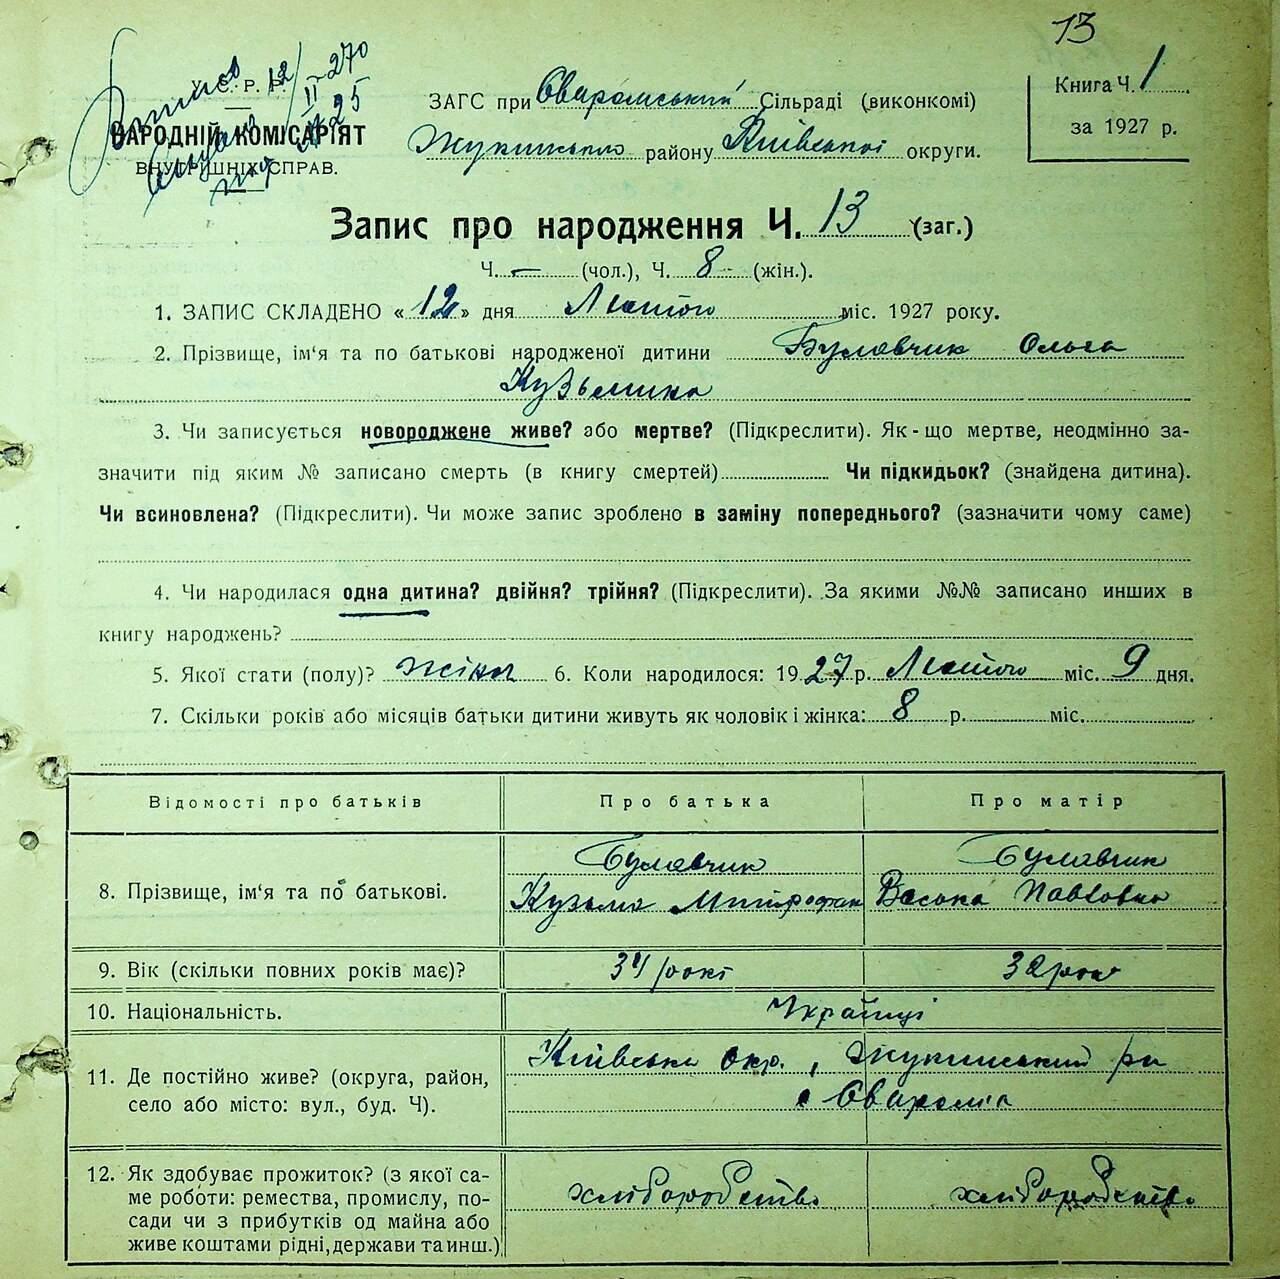 13
У. С. Р. Р. 12/II 270
НАРОДНІЙ КОМІСАРІЯТ
ВНУТРІШНІХ СПРАВ.
ЗАГС при Сваромський Сільраді (виконкомі)
Жукинського району Київської округи.
Книга Ч. 1
за 1927 р.
Запис про народження Ч. 13 (заг.)
Ч. — (чол.), Ч. 8 (жін.).
1. ЗАПИС СКЛАДЕНО «12» дня Лютого міс. 1927 року.
2. Прізвище, ім'я та по батькові народженої дитини Булавчик Ольга
Кузьмина
3. Чи записується новороджене живе? або мертве? (Підкреслити). Як-що мертве, неодмінно за-
значити під яким № записано смерть (в книгу смертей) Чи підкидьок? (знайдена дитина).
Чи всиновлена? (Підкреслити). Чи може запис зроблено в заміну попереднього? (зазначити чому саме)
4. Чи народилася одна дитина? двійня? трійня? (Підкреслити). За якими №№ записано инших в
книгу народжень?
5. Якої стати (полу)? жіноч 6. Коли народилося: 1927 р. Лютого міс. 9 дня.
7. Скільки років або місяців батьки дитини живуть як чоловік і жінка: 8 р. міс.
Відомості про батьків Про батька Про матір
8. Прізвище, ім'я та по батькові. Булавчик Булавчик
Кузьма Митрофан Васька Павловна
9. Вік (скільки повних років має)? 34 роки 32 роки
10. Національність. Українці
11. Де постійно живе? (округа, район, село або місто: вул., буд. Ч). Київська окр., Жукинський рн
с Сваромя
12. Як здобуває прожиток? (з якої са-
ме роботи: ремества, промислу, по-
сади чи з прибутків од майна або
живе коштами рідні, держави та инш.) хліборобство хліборобство